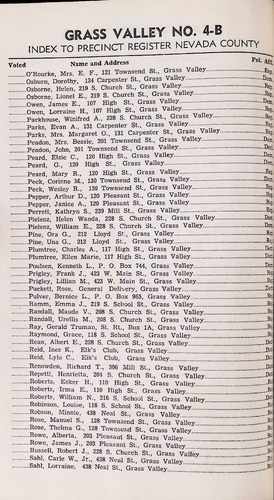 GRASS VALLEY NO. 4-B
INDEX TO PRECINCT REGISTER NEVADA COUNTY
Voted Name and Address Pol. Aff.
O'Rourke, Mrs. E. F., 121 Townsend St., Grass Valley
Osburn, Dorothy, 134 Carpenter St., Grass Valley
Osborne, Helen, 219 S. Church St., Grass Valley
Osborne, Lionel E., 219 S. Church St., Grass Valley
Owen, James E., 107 High St., Grass Valley
Owen, Lorraine H., 107 High St., Grass Valley
Parkhouse, Winifred A., 228 S. Church St., Grass Valley
Parks, Evan A., 131 Carpenter St., Grass Valley
Parks, Mrs. Margaret O., 131 Carpenter St., Grass Valley
Peadon, Mrs. Bessie, 201 Townsend St., Grass Valley
Peadon, John, 201 Townsend St., Grass Valley
Peard, Elsie C., 120 High St., Grass Valley
Peard, G., 120 High St., Grass Valley
Peard, Mary R., 120 High St., Grass Valley
Peck, Corinne M., 130 Townsend St., Grass Valley
Peck, Wesley R., 130 Townsend St., Grass Valley
Pepper, Arthur D., 120 Pleasant St., Grass Valley
Pepper, Janice A., 120 Pleasant St., Grass Valley
Perrett, Kathryn S., 239 Mill St., Grass Valley
Pielenz, Helen Wands, 228 S. Church St., Grass Valley
Pielenz, William E., 228 S. Church St., Grass Valley
Pine, Ora G., 212 Lloyd St., Grass Valley
Pine, Una G., 212 Lloyd St., Grass Valley
Plumtree, Charles A., 117 High St., Grass Valley
Plumtree, Ellen Marie, 117 High St., Grass Valley
Poulsen, Kenneth L., P. O. Box 744, Grass Valley
Prigley, Frank J., 423 W. Main St., Grass Valley
Prigley, Lillian M., 423 W. Main St., Grass Valley
Puckett, Rose, General Delivery, Grass Valley
Pulver, Bernice L., P. O. Box 965, Grass Valley
Ramm, Emma J., 219 S. School St., Grass Valley
Randall, Maude V., 208 S. Church St., Grass Valley
Randall, Urellis M., 208 S. Church St., Grass Valley
Ray, Gerald Truman, St. Rt., Box 1A, Grass Valley
Raymond, Grace, 118 S. School St., Grass Valley
Rean, Albert E., 228 S. Church St., Grass Valley
Reid, Inez K., Elk's Club, Grass Valley
Reid, Lylo C., Elk's Club, Grass Valley
Renowden, Richard T., 306 Mill St., Grass Valley
Repetti, Henrietta, 204 S. Church St., Grass Valley
Roberts, Esker H., 110 High St., Grass Valley
Roberts, Irma E., 110 High St., Grass Valley
Roberts, William N., 216 S. School St., Grass Valley
Robinson, Louise, 118 S. School St., Grass Valley
Robson, Minnie, 438 Neal St., Grass Valley
Rose, Manuel S., 128 Townsend St., Grass Valley
Rose, Thelma G., 128 Townsend St., Grass Valley
Rowe, Alberta, 203 Pleasant St., Grass Valley
Rowe, James J., 203 Pleasant St., Grass Valley
Russell, Robert J., 228 S. Church St., Grass Valley
Sahl, Carle W., Jr., 438 Neal St., Grass Valley
Sahl, Lorraine, 438 Neal St., Grass Valley